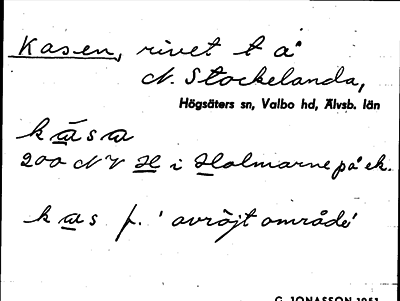 Kasen, rivet t å
N. Stockelanda,
Högsäters sn, Valbo hd, Älvsb. län
kāsa
200 NV H i Holmarne på ek.
kas f. 'avröjt område'
G. JONASSON 1951